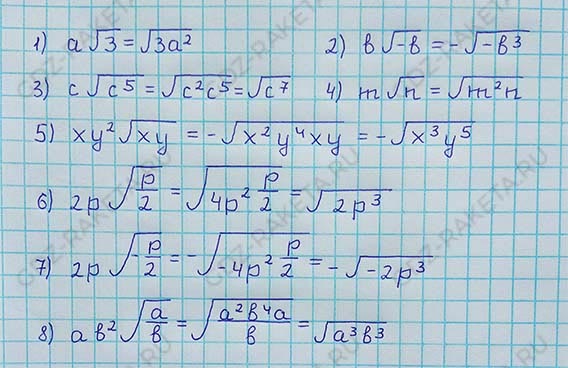 1) a√3 = √3a²   2) в√-в = -√-в³
3) c√c⁵ = √c²c⁵ = √c⁷   4) m√n = √m²n
5) xy²√xy = -√x²y⁴xy = -√x³y⁵
6) 2p√p/2 = √4p² p/2 = √2p³
7) 2p√-p/2 = -√-4p² p/2 = -√-2p³
8) aв²√a/в = √a²в⁴a/в = √a³в³
GDZ-RAKETA.RU